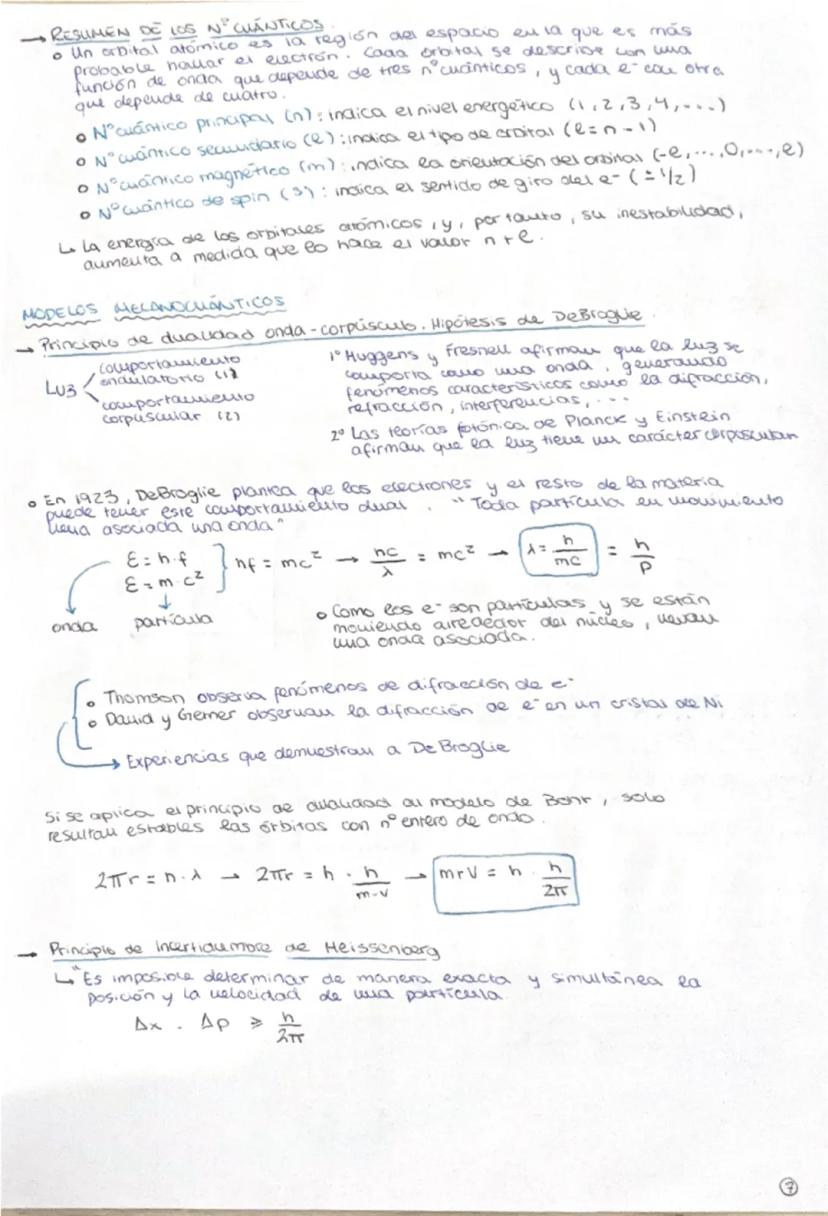 → RESUMEN DE LOS Nº CUÁNTICOS.
o Un orbital atómico es la región del espacio en la que es más
probable hallar el electrón. Cada orbital se describe con una
función de onda que depende de tres nºcuánticos, y cada e⁻ con otra
que depende de cuatro.
o Nºcuántico principal (n): indica el nivel energético (1, 2, 3, 4, ...)
o Nºcuántico secundario (l): indica el tipo de orbital (l = n - 1)
o Nºcuántico magnético (m): indica la orientación del orbital (-l, ..., 0, ..., l)
o Nºcuántico de spin (s): indica el sentido de giro del e⁻ (± 1/2)
↳ La energía de los orbitales atómicos, y, por tanto, su inestabilidad,
aumenta a medida que lo hace el valor n + l.
MODELOS MECANOCUÁNTICOS
→ Principio de dualidad onda-corpúsculo. Hipótesis de DeBroglie.
Luz
comportamiento
ondulatorio (1)
comportamiento
corpuscular (2)
1º Huggens y Fresnell afirman que la luz se
comporta como una onda, generando
fenómenos característicos como la difracción,
refracción, interferencias, ...
2º Las teorías fotónica de Planck y Einstein
afirman que la luz tiene un carácter corpuscular
o En 1923, DeBroglie plantea que los electrones y el resto de la materia
puede tener este comportamiento dual. "Toda partícula en movimiento
lleva asociada una onda"
Ɛ = h · f
Ɛ = m · c²
} hf = mc² → hc/λ = mc² → λ = h/mc = h/p
onda partícula
o Como los e⁻ son partículas y se están
moviendo alrededor del núcleo, llevan
una onda asociada.
o Thomson observa fenómenos de difracción de e⁻
o David y Germer observan la difracción de e⁻ en un cristal de Ni
→ Experiencias que demuestran a DeBroglie
Si se aplica el principio de dualidad al modelo de Bohr, solo
resultan estables las órbitas con nº entero de onda.
2πr = n · λ → 2πr = n · h/m·v → mrV = n · h/2π
→ Principio de Incertidumbre de Heissenberg
↳ "Es imposible determinar de manera exacta y simultánea la
posición y la velocidad de una partícula.
Δx · Δp ≥ h/2π
7